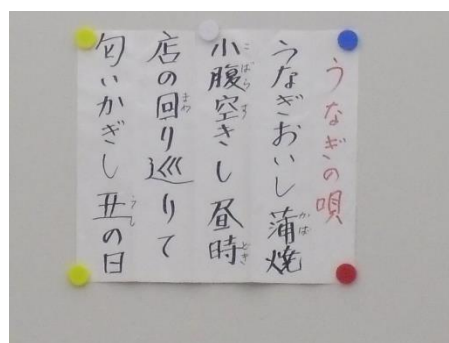 うなぎの唄
うなぎおいし蒲焼
小腹空きし昼時
店の回り巡りて
匂いかぎし丑の日